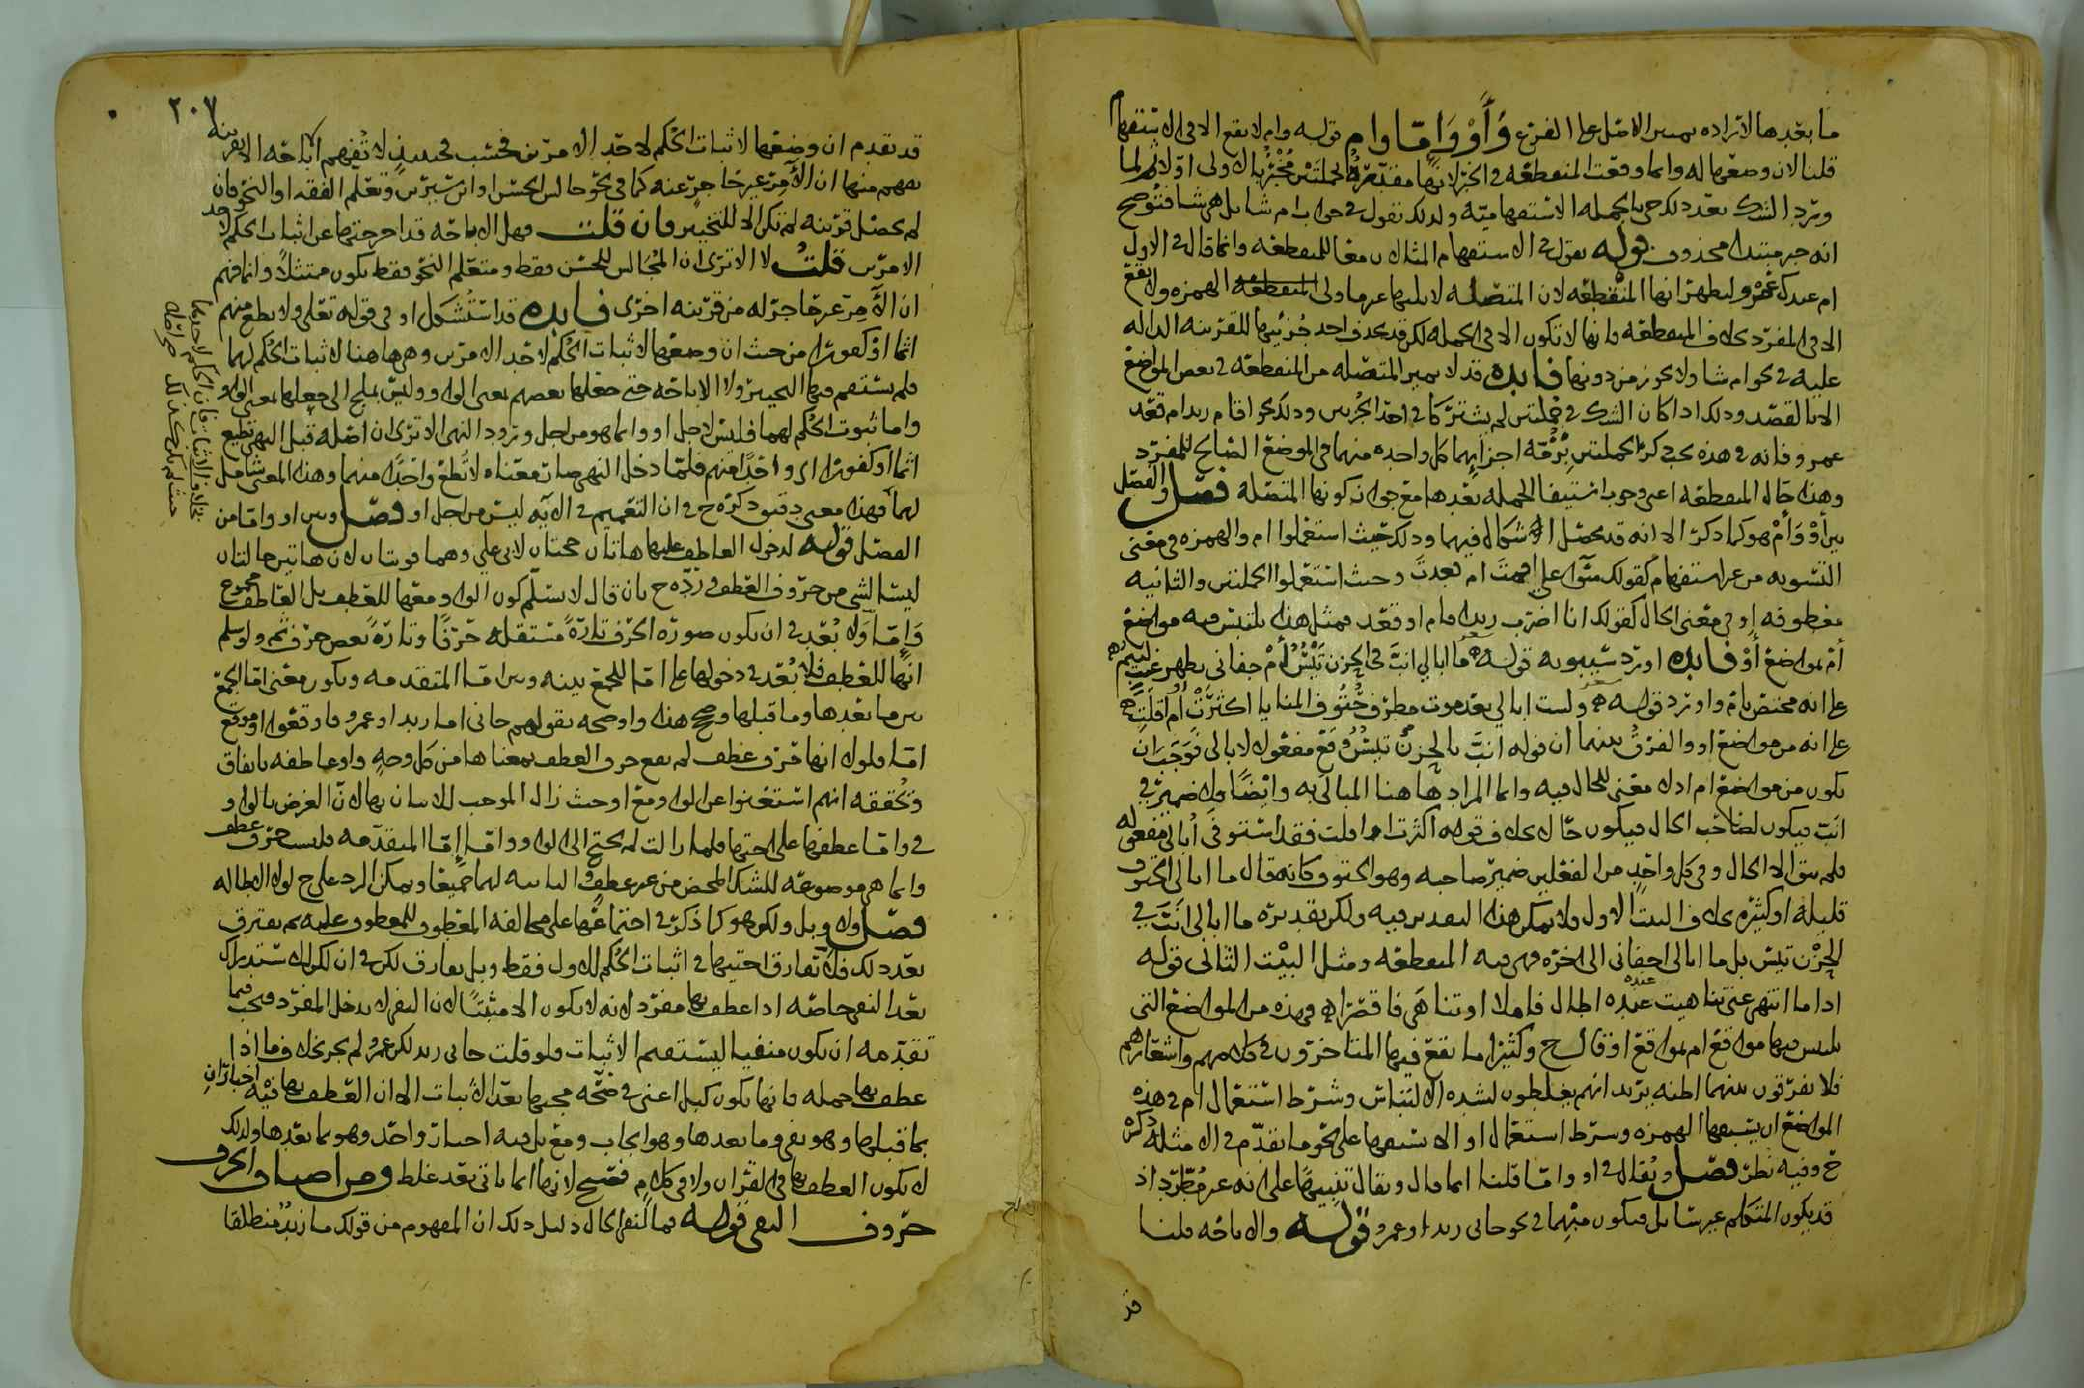 ما بعدها لا تراده بمىىىن الاصل على الفرع وَأَوْ وَإِمّا وام قوله وام لا يقع الا في الاستفهام
قلنا لان وضعها له وانما وقعت المنقطعه في الخبر لانها مقدره الجملتين مخبر بالاولى اولا ثم لما
ورد الشك بعد ذلك جي بالجمله الاستفهاميه ولذلك نقول في جواب ام شا بل هي شا فتوضح
انه خبر مبتدا محذوف قوله نقول في الاستفهام المثالان معا للمنقطعه وانما قال في الاول
ام عندك عمرو ليظهر انها المنقطعه لان المتصله لا يليها غير ما ولي الهمزه ولا تقع
الا في المفرد بخلاف المنقطعه فانها لا تكون الا في الجمله لكن قد يحذف احد جزئيها للقرينه الداله
عليه في نحو ام شا ولا يجوز من دونها فايده قد لا تميز المتصله من المنقطعه في بعض المواضع
الا بالقصد وذلك اذا كان الشك في جملتين لم يشتركا في احد الجزئين وذلك نحو اقام زيد ام قعد
عمرو فانه في هذه يجب ذكر الجملتين برمّته اجزايهما كل واحده منهما في الموضع الصالح للمفرد
وهذا حال المنقطعه اعني وجوب استيفا الجمله بعدها مع جواز كونها المتصله فصل والفصل
بين أَوْ وَأَمْ هو كما ذكر الا انه قد يحصل الاشكال فيهما وذلك حيث استعملوا ام والهمزه في معنى
التسويه من غير استفهام كقولك سوا علي اقمت ام قعدت وحيث استعملوا الجملتين والثانيه
معطوفه او في معنى الحال كقولك انا اضرب زيدا قام او قعد فمثل هذا يلتبس فيه مواضع
أم بمواضع أَوْ فايده اورد سيبويه قوله ما ابالي انبَّ في الحزن تيس أم جفاني بظهر غيب لئيم
على انه مختص بام واورد قوله ولست ابالي بعد موت مطرف حتوف المنايا اكثرت أو اقلت
على انه من مواضع او والفرق بينهما ان قوله انبّ بالحزن تيس وقع مفعولا لابالي فوجب ان
يكون من مواضع ام اذ لا معنى للحال فيه وانما المراد ها هنا المبالى به وايضا ولا ضمير في
انب فيكون لصاحب الحال فيكون حالا بخلاف قوله اكثرت او اقلت فقد استوفى أبالي مفعوله
فلم يبق الا الحال وفي كل واحد من الفعلين ضمير صاحبه وهو الحتوف وكانه قال ما ابالي الحتوف
قليله او كثيره بخلاف البيت الاول فلا يمكن هذا التقدير فيه ولكن تقديره ما ابالي انبّ في
الحزن تيس بل ما ابالي اجفاني الى اخره فهي فيه المنقطعه ومثل البيت الثاني قوله
اذا ما انتهى عني تناهيت عنده اطال فاملا او تناهى فاقصرا فهذه من المواضع التي
يلتبس فيها مواقع ام بمواقع او قال ح وكثيرا ما يقع فيها المتاخرون في كلامهم واشعارهم
فلا يفرقون بينهما اظنه يريد انهم يغلطون لشده الالتباس وشرط استعمال ام في هذه
المواضع ان يسبقها الهمزه وشرط استعمال او الا يسبقها على نحو ما تقدّم في الامثله ذكره
ح وفيه نظر فصل ويقال في او واما قلنا انما قال ويقال تنبيها على انه غير مطّرد اذ
قد يكون المتكلم غير شاك فيكون مبهما في نحو جاني زيد او عمرو قوله والاباحه قلنا
قد
٢٠٧
قد تقدم ان وضعها لاثبات الحكم لاحد الامرين فحسب فحينئذ لا تفهم الاباحه الا بقرينه
يفهم منها ان الآمر غير حاجر عنه كما في نحو جالس الحسن او ابن سيرين وتعلم الفقه او النحو فان
لم تحصل قرينه لم تكن الا للتخيير فان قلت فهل الاباحه قد اخرجتها عن اثبات الحكم لاحد
الامرين قلتُ لا الا ترى ان المجالس للحسن فقط ومتعلم النحو فقط يكون ممتثلا وانما فهم
ان الآمر غير حاجر له من قرينه اخرى فايده قد استُشكل او في قوله تعلى ولا تطع منهم
اثما او كفورا من حيث ان وضعها لاثبات الحكم لاحد الامرين وهي ها هنا لاثبات الحكم لهما
فلم يستقم فيها التخيير ولا الاباحه حتى جعلها بعضهم بمعنى الواو وليس بملجئ الى جعلها بمعنى الواو
واما ثبوت الحكم لهما فليس لاجل او وانما هو من اجل ورود النهي الا ترى ان اصله قبل النهي تطيع
اثما او كفورا اي واحدا منهم فلما دخل النهي صار معناه لا تطع واحدا منهما وهذا المعنى شامل
لهما فهذا معنى دقيق ذكره ح في ان التعميم في الآيه ليس من اجل او فصل وبين او واما من
الفصل قوله لدخول العاطف عليها هاتان حجتان لابي علي وهما قويتان لان هاتين حالتان
ليستا لشي من حروف العطف ورده ح بان قال لا نسلم كون الواو معها للعطف بل العاطف مجموع
وَإمّا ولا بُعْد في ان يكون صوره الحرف تارة مستقله حرفا وتارة بعض حرف ثم ولو سلم
انها للعطف فلا بُعد في دخولها على اما للجمع بينه وبين اما المتقدمه ويكون معنى اما الجمع
بين ما بعدها وما قبلها وصح هذا واوضحه بقولهم جاني اما زيد او عمرو فاوقعوا او موقع
امّا فلولا انها حرف عطف لم يقع حرف العطف بمعناها من كل وجه واو عاطفه باتفاق
وتحققه انهم استغنوا عن الواو مع او حيث زال الموجب للاتيان بها لان الغرض بالواو
في واما عطفها على اختها فلما زالت لم يحتج الى الواو واما إمّا المتقدمه فليست حرف عطف
وانما هي موضوعه للشك المحض من غير عطف والثانيه لهما جميعا ويمكن الرد على ح لولا الاطاله
فصل ولا وبل ولكن هو كما ذكر في اجتماعها على مخالفه المعطوف للمعطوف عليه ثم يفترق
بعد ذلك فلا تفارق اختيها في اثبات الحكم للاول فقط وبل يفارق لكن في ان لكن للاستدراك
بعد النفي خاصّه اذا عطف بها مفرد لانه لا يكون الا مثبتا لان النفي لا يدخل المفرد فيجب فيما
تقدمه ان يكون منفيا ليستقيم الاثبات فلو قلت جاني زيد لكن عمرو لم يجز بخلاف ما اذا
عطف بها جمله فانها تكون كبل اعني في صحّه مجيها بعد الاثبات الا ان العطف بها فيه اخباران
بما قبلها وهو نفي وما بعدها وهو ايجاب ومع بل فيه اخبار واحد وهو بما بعدها ولذلك
لا يكون العطف بها في القران ولا في كلام فصيح لانها انما ياتي بعد غلط ومن اصناف الحرف
حروف النفي قوله فما لنفي الحال دليل ذلك ان المفهوم من قولك ما زيدٌ منطلقا
بخلاف الاثبات فان الحكم لاحدهما
حيث لم يكن كذلك من اصله